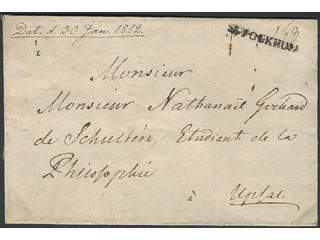 Dat. d. 30 Jan. 1812.
STOCKHOLM
Monsieur
Monsieur Nathanaël Gerhard
de Schultén, Etudiant de la
Philosophie
à
Upsal.